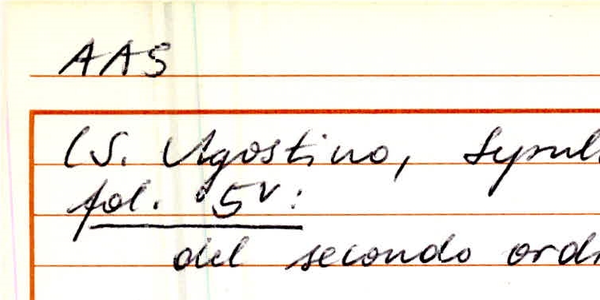 AAS
(S. Agostino, Sepul
fol. 5v:
del secondo ordi